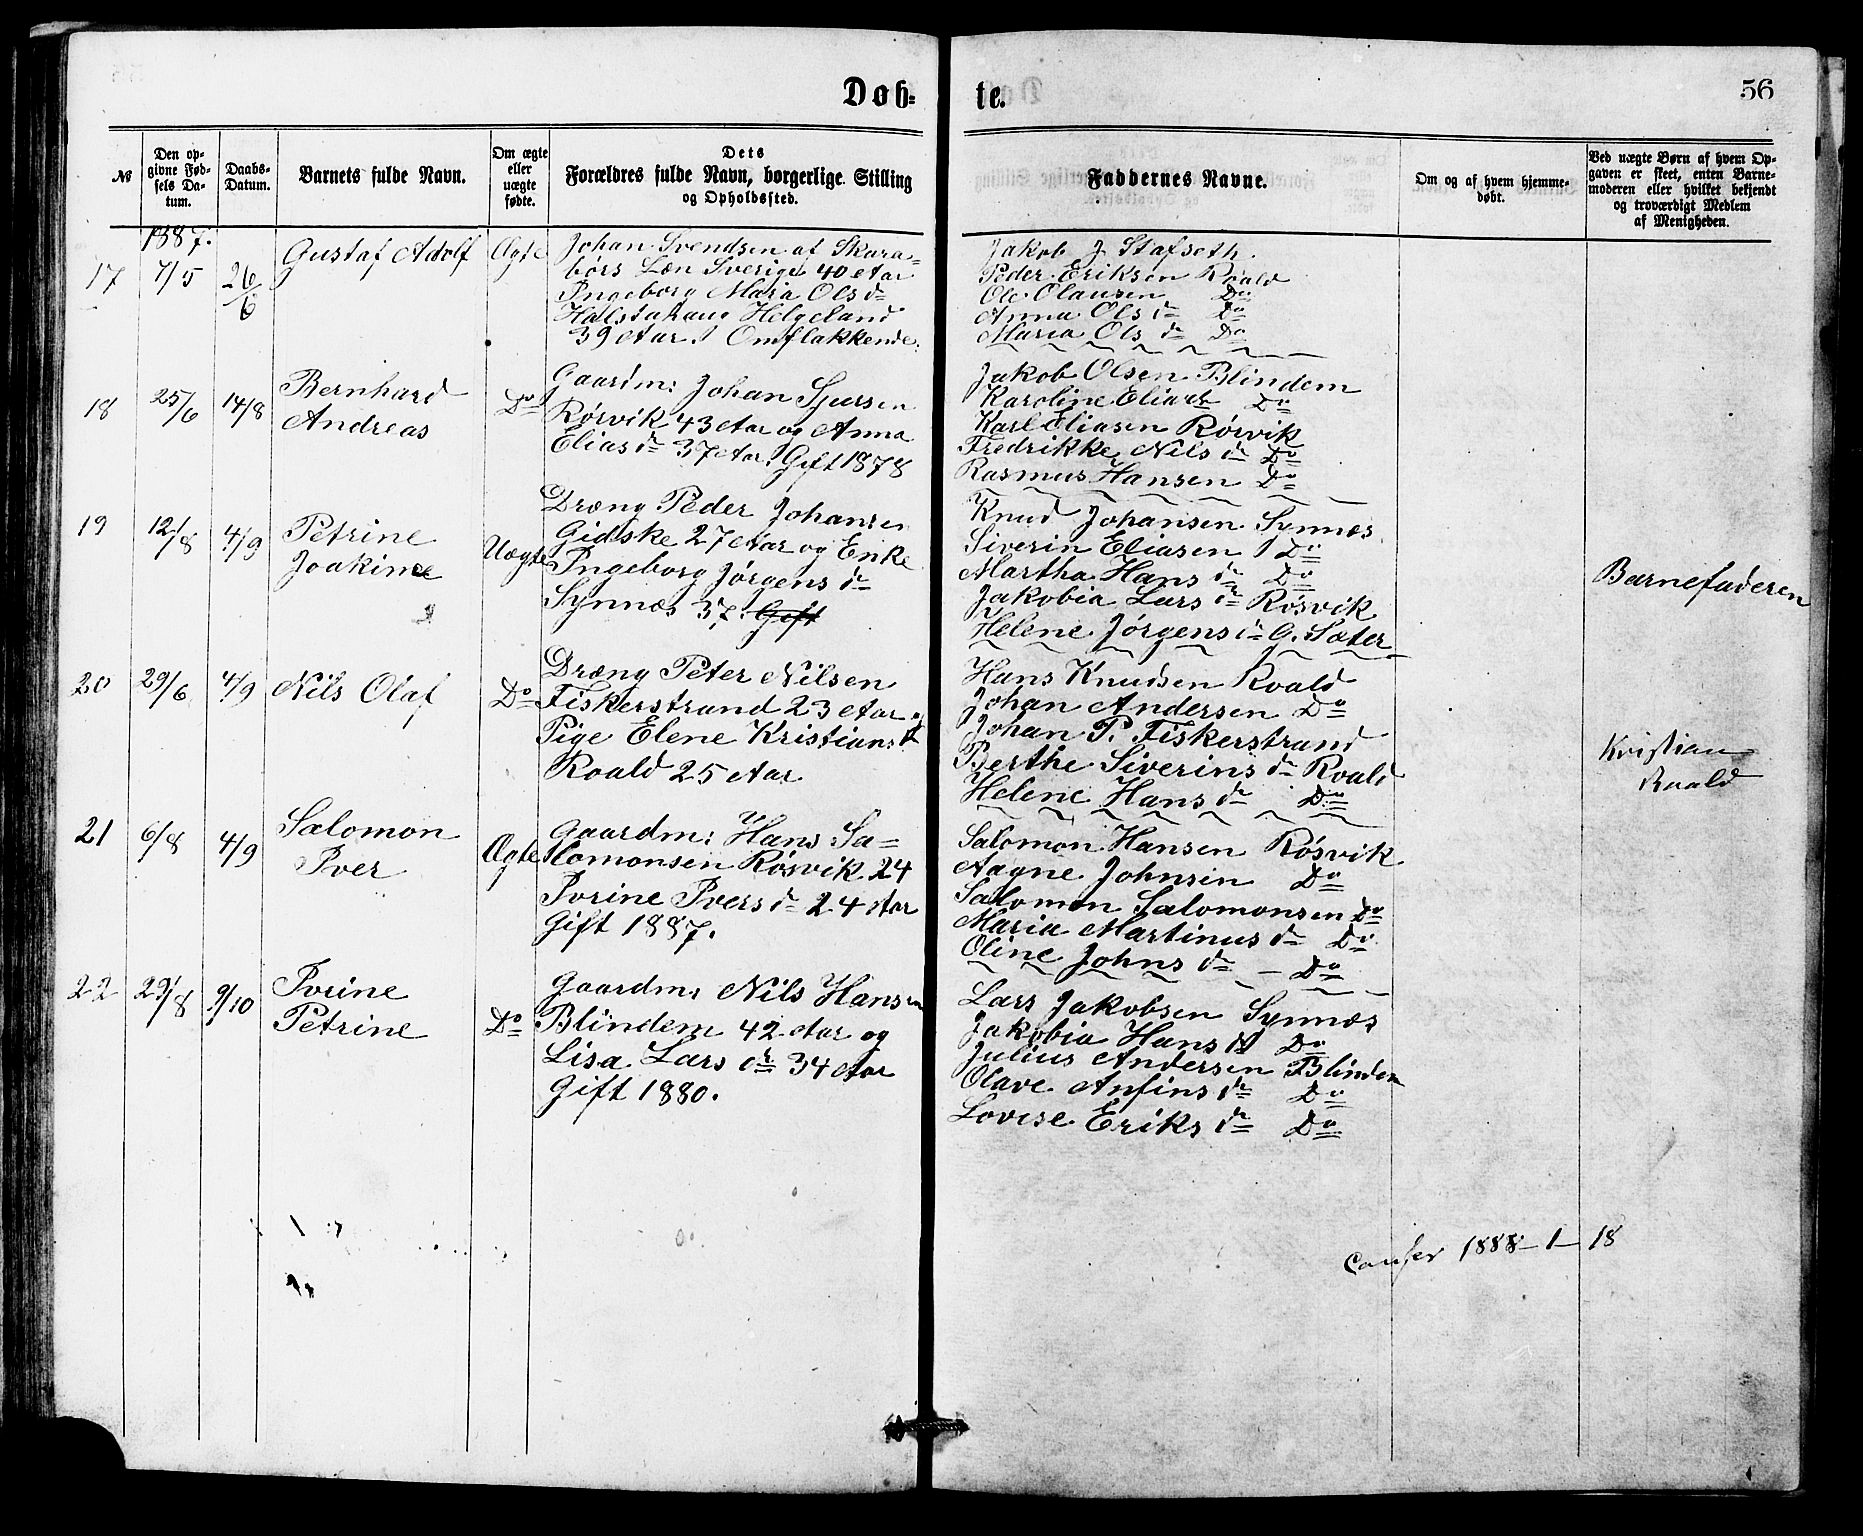 Døb-
te.
56
№
Den op-
givne Fød-
sels Da-
tum.
Daabs-
Datum.
Barnets fulde Navn.
Om ægte
eller
uægte
fødte.
Dets
Forældres fulde Navn, borgerlige Stilling
og Opholdssted.
Faddernes Navne.
Om og af hvem hjemme-
døbt.
Ved uægte Børn af hvem Op-
gaven er skeet, enten Barne-
moderen eller hvilket bekjendt
og troværdigt Medlem
af Menigheden.
1887.
17
7/5
26/6
Gustaf Adolf
Ægte
Johan Svendsen af Skara-
børs Læn Sverige 40 Aar
Ingeborg Maria Ols dr
Halstahaug Helgeland
39 Aar. Omflakkende.
Jakob J. Stafseth.
Peder Eriksen Roald
Ole Olausen Do
Anna Ols dr Do
Maria Ols dr Do
18
25/6
14/8
Bernhard
Andreas
Do
Gaardm: Johan Sjursen
Røsvik 43 Aar og Anna
Elias dr 37 Aar. Gift 1878
Jakob Olsen Blindem
Karoline Elias dr Do
Karl Eliasen Røsvik
Fredrikke Nils dr Do
Rasmus Hansen Do
19
12/8
4/9
Petrine
Joakime
Uægte
Dræng Peder Johansen
Gidske 27 Aar og Enke
Ingeborg Jørgens dr
Synnæs 37. Gift
Knud Johansen Synnæs.
Siverin Eliasen Do
Martha Hans dr Do
Jakobia Lars dr Røsvik
Helene Jørgens dr G. Sæter
Barnefaderen
20
29/6
4/9
Nils Olaf
Do
Dræng Peter Nilsen
Fiskerstrand 23 Aar og
Pige Elene Kristians dr
Roald 25 Aar
Hans Knudsen Roald
Johan Andersen Do
Johan P. Fiskerstrand
Berthe Siverins dr Roald
Helene Hans dr Do
Kristian
Roald
21
6/8
4/9
Salomon
Iver
Ægte
Gaardm: Hans Sa-
lomonsen Røsvik 24
Ivrine Ivers dr 24 Aar
Gift 1887.
Salomon Hansen Røsvik
Aagne Johnsen Do
Salomon Salomonsen Do
Maria Martinus dr Do
Oline Johns dr - Do
22
29/8
9/10
Ivrine
Petrine
Do
Gaardm: Nils Hansen
Blindem 42 Aar og
Lisa Lars dr 34 Aar
Gift 1880.
Lars Jakobsen Synnæs
Jakobia Hans dr Do
Julius Andersen Blindem
Olave Anfins dr Do
Lovise Eriks dr Do
Confer 1888-1-18